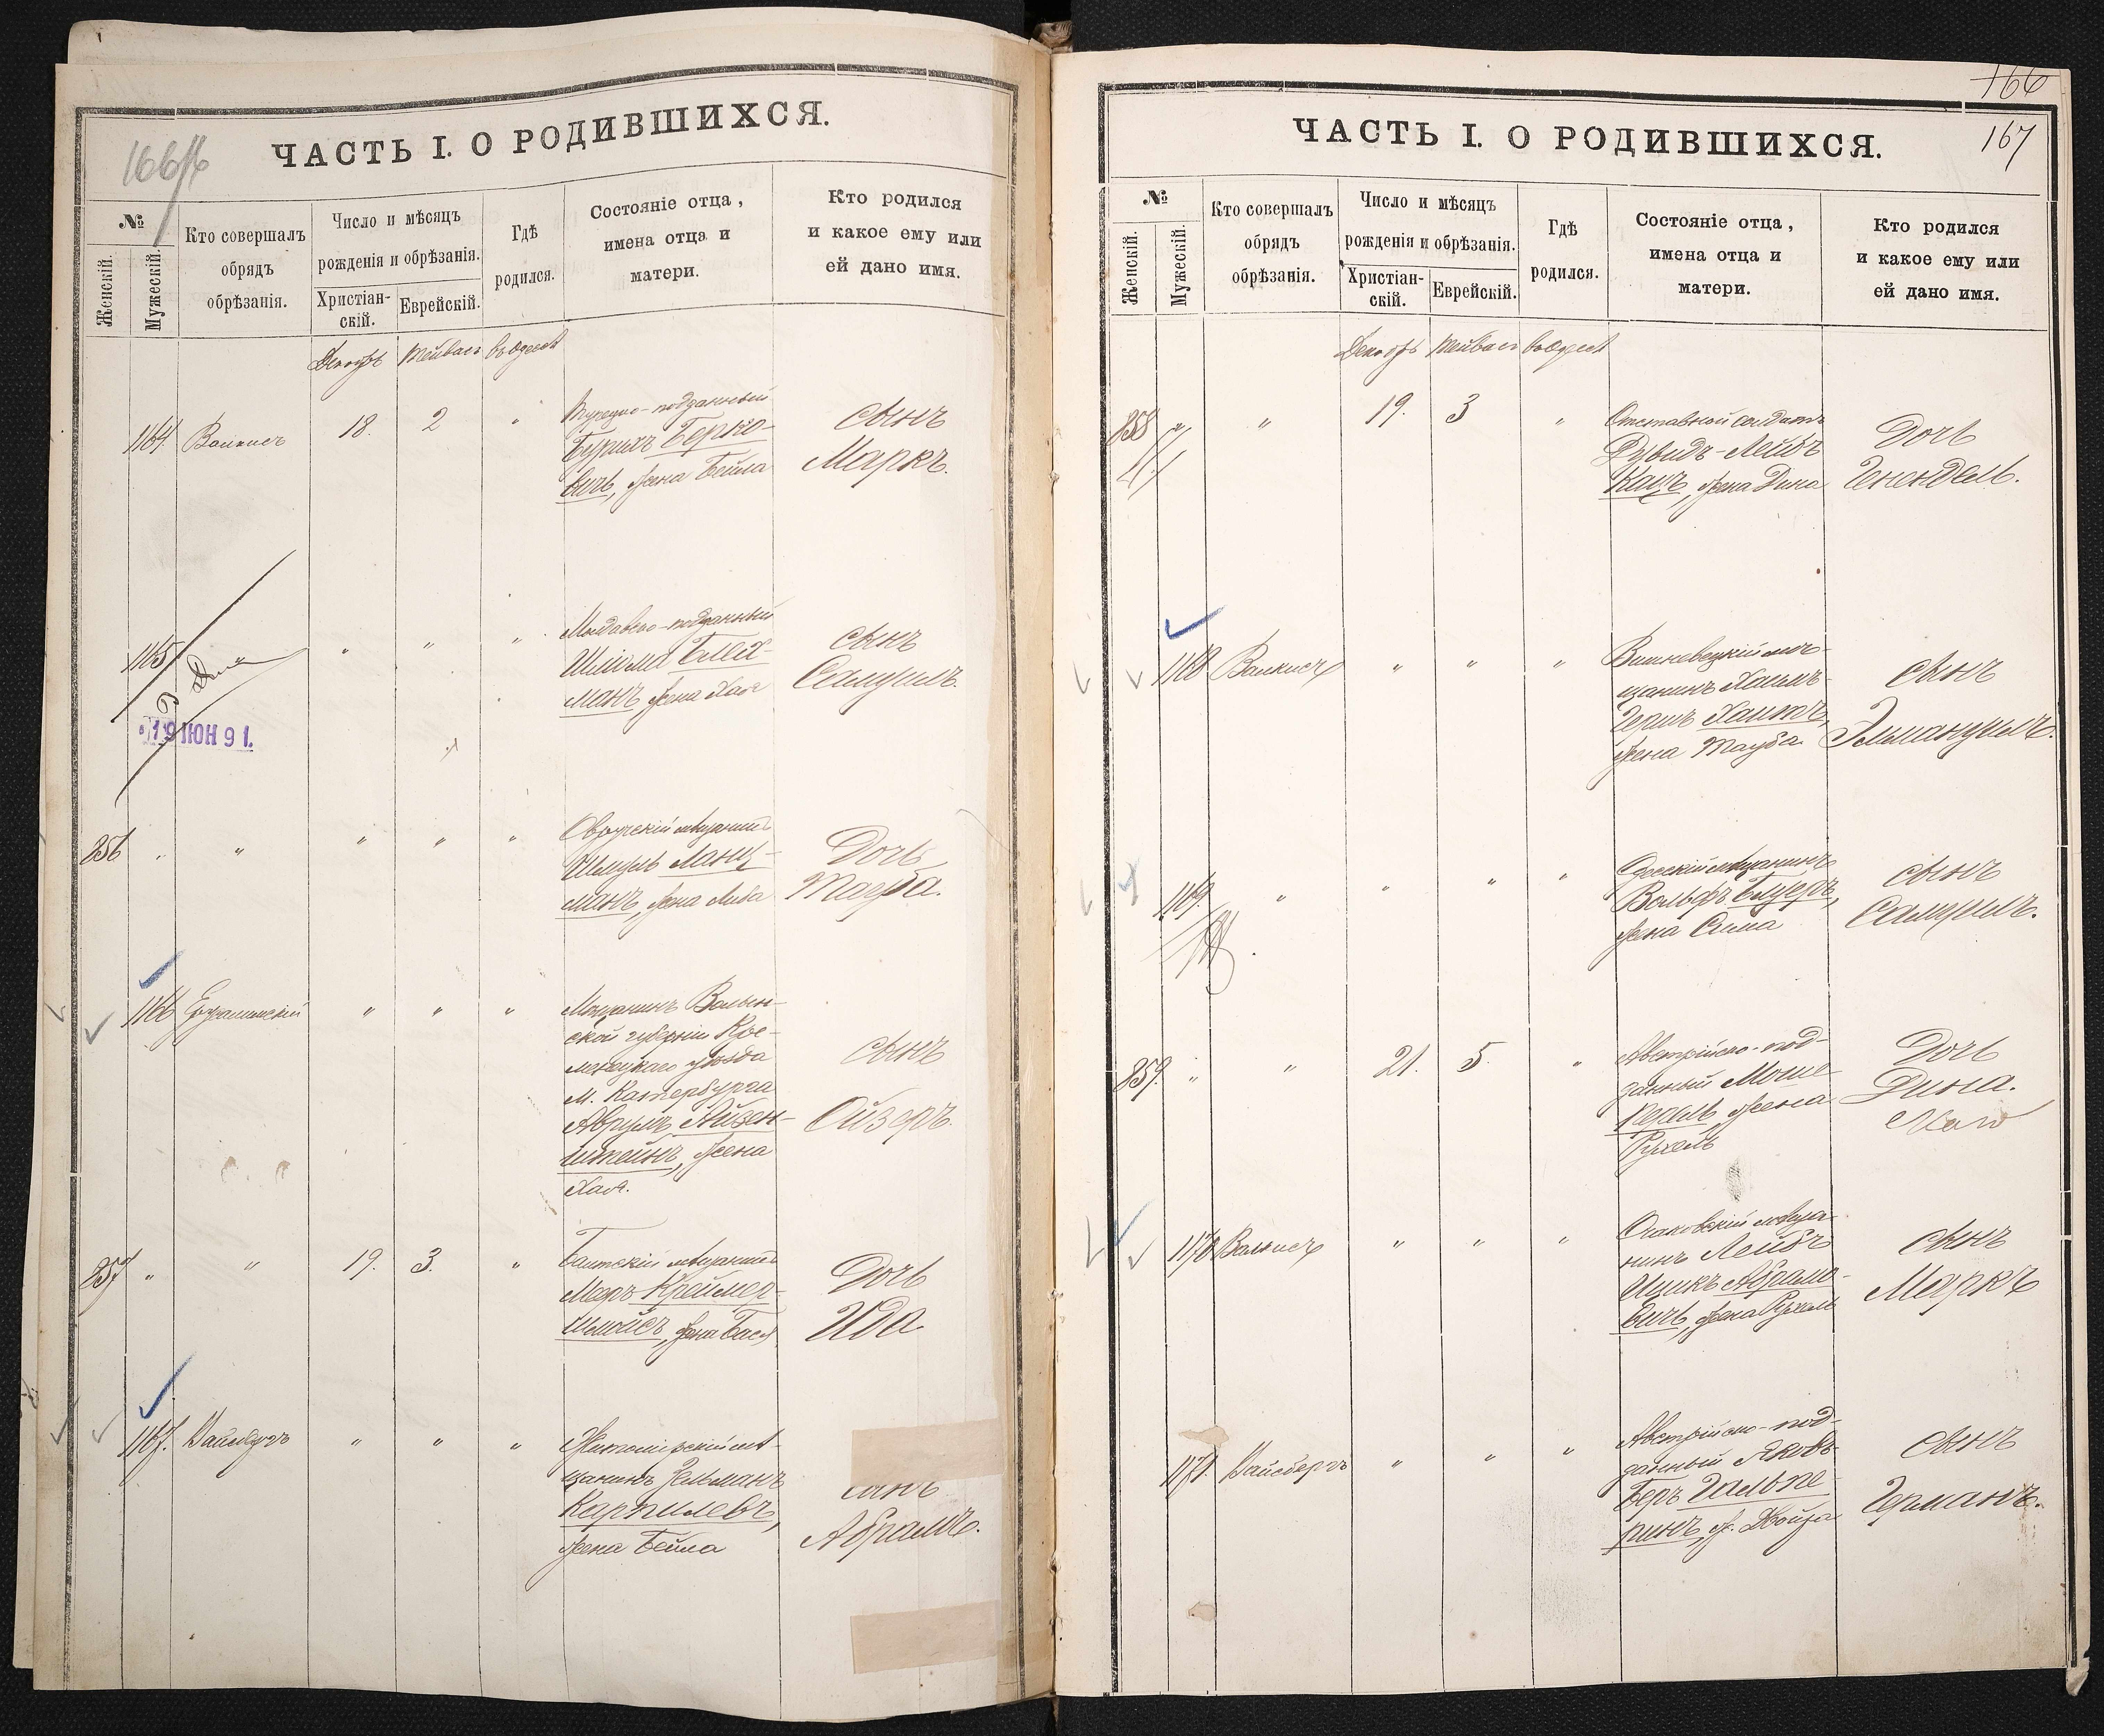 ЧАСТЬ I. О РОДИВШИХСЯ.
№
Женскій.
Мужескій.
Кто совершалъ
обрядъ
обрѣзанія.
Число и мѣсяцъ
рожденія и обрѣзанія.
Христіан-
скій.
Еврейскій.
Гдѣ
родился.
Состояніе отца,
имена отца и
матери.
Кто родился
и какое ему или
ей дано имя.
Декабрь Тейвасъ въ Одессѣ
1164. 18. 2 "
Турецко-подданный
Берко-
вичъ, жена Бейла
сынъ
Маркъ.
1165 " " "
Молдавско-подданный
Шлiома Блех-
манъ жена Хая
сынъ
Самуилъ.
19 ІЮН 91.
856 " " " " "
Овручскій мѣщанинъ
Шмуль Ланц-
манъ, жена Либа
Дочь
Тауба.
1166 " " "
Мѣщанинъ Волын-
ской губерніи Кре-
менецкаго уѣзда
М. Катербурга
Аврумъ Айзен-
штейнъ, жена
Хая.
сынъ
Ойзеръ.
857 " " 19. 3. "
Балтскій мѣщанинъ
Меръ
жена Бася
Дочь
Ида
1167. " " "
Житомірскій мѣ-
щанинъ Зельманъ
Карпилевъ,
жена Бейла
сынъ
Абрамъ.
166
167
ЧАСТЬ I. О РОДИВШИХСЯ.
№
Женскій.
Мужескій.
Кто совершалъ
обрядъ
обрѣзанія.
Число и мѣсяцъ
рожденія и обрѣзанія.
Христіан-
скій.
Еврейскій.
Гдѣ
родился.
Состояніе отца,
имена отца и
матери.
Кто родился
и какое ему или
ей дано имя.
Декабрь Тейвасъ въ Одессѣ
858 " " 19. 3 "
Отставной солдатъ
Дувидъ-Лейбъ
Кацъ, жена Дина
Дочь
Генендель.
1168 " " "
Вишневецкій мѣ-
щанинъ Хаимъ-
Гершъ Хаитъ,
жена Тауба.
сынъ
Эльмануилъ.
1169. " " " "
Одесскій мѣщанинъ
Вольфъ
жена Сима
сынъ
Самуилъ.
859. " " 21. 5. "
Австрійско-под-
данный Моше
жена
Рухель
Дочь
Дина.
1170 " " "
Очаковскій мѣща-
нинъ Лейбъ
Ицикъ Абрамо-
вичъ, жена Рухель
сынъ
Маркъ
1171. Вайсбергъ " " "
Австрійско-под-
данный Яковъ-
Беръ Гальпе-
ринъ, ж. Двойра
сынъ
Германъ.